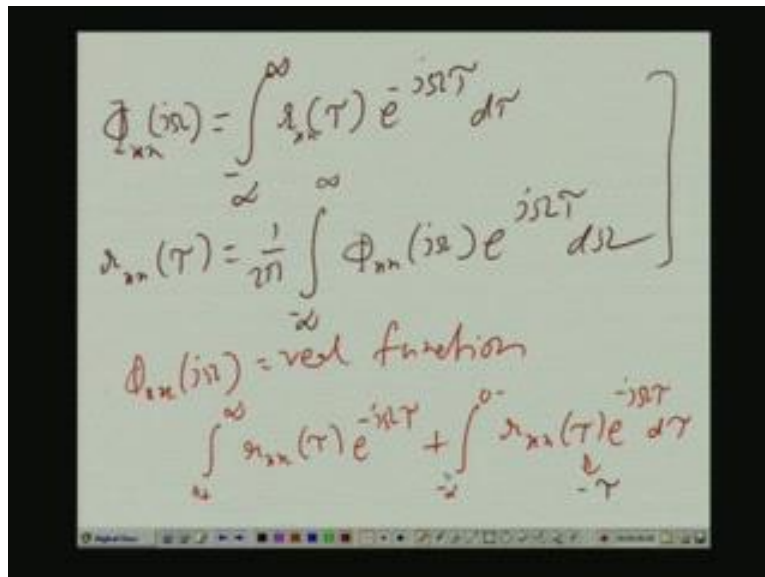 Φ_xx(jΩ) = ∫_{-∞}^{∞} r_xx(τ) e^{-jΩτ} dτ
r_xx(τ) = 1/2π ∫_{-∞}^{∞} Φ_xx(jΩ) e^{jΩτ} dΩ
Φ_xx(jΩ) = real function
∫_{0+}^{∞} r_xx(τ) e^{-jΩτ} + ∫_{-∞}^{0-} r_xx(τ) e^{-jΩτ} dτ
-τ